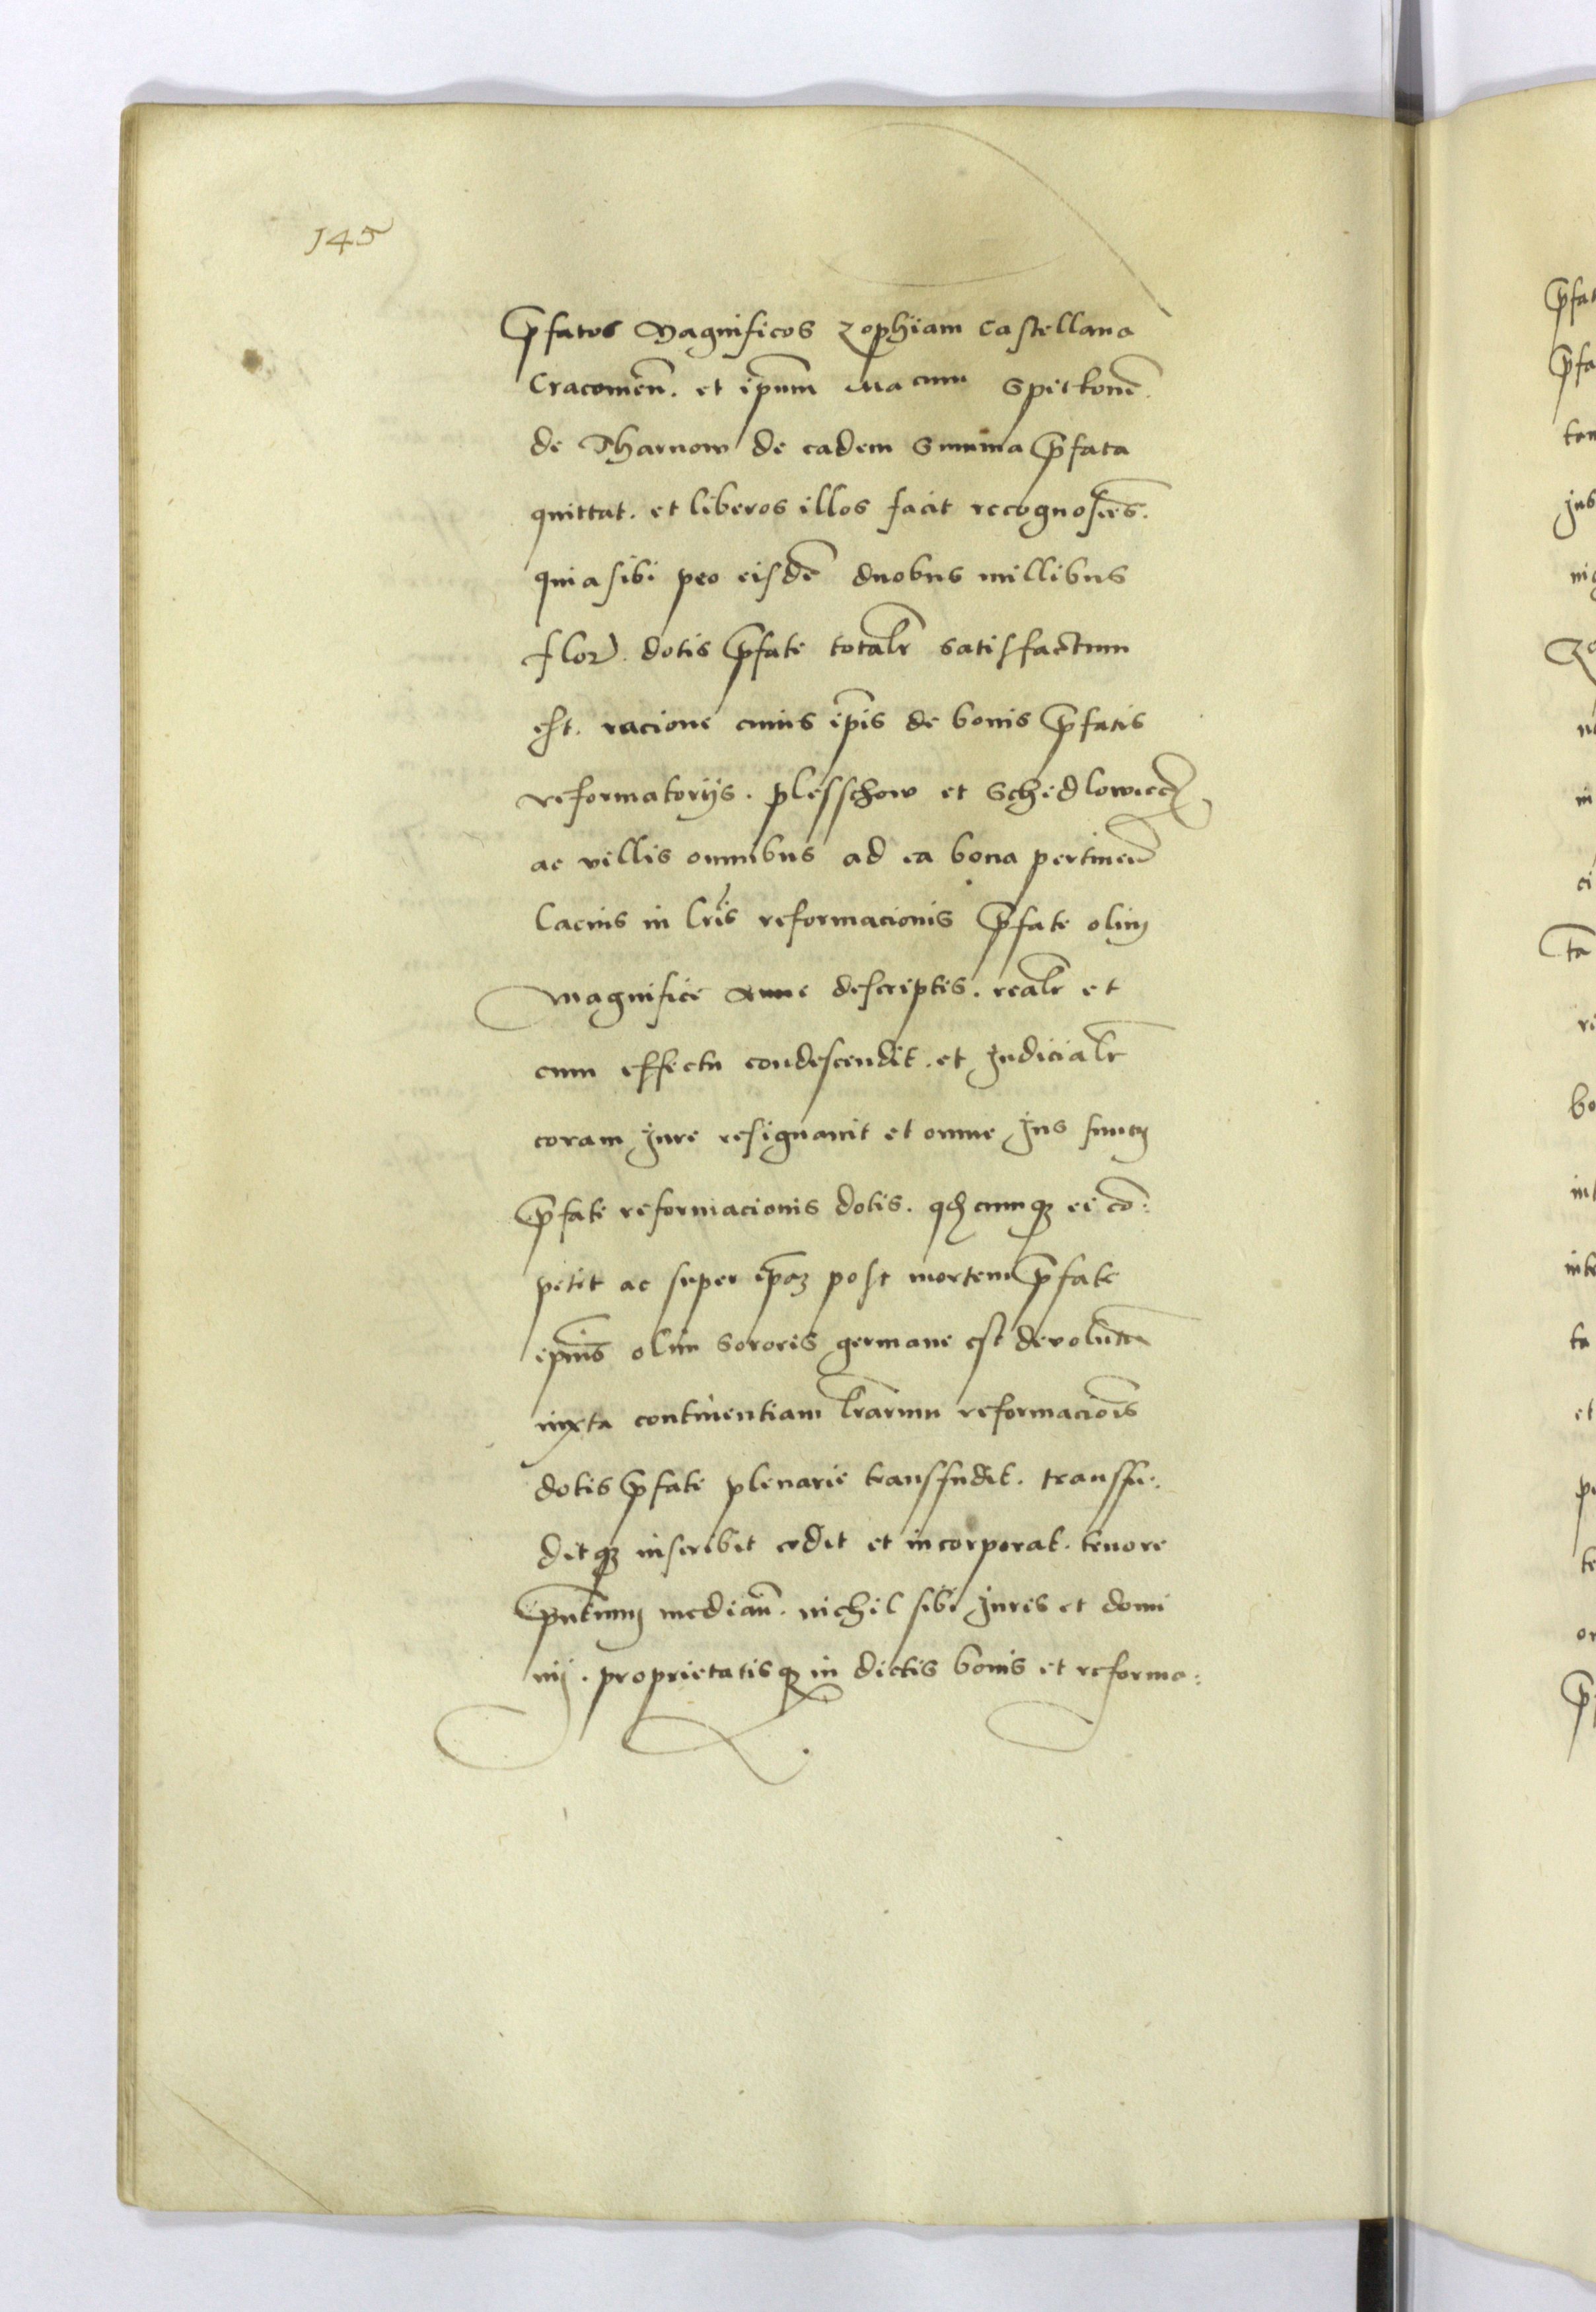 145
p̄fatos Magnificos Zophiam Castellana
Cracouień. et ip̄um Ma cum Spitkonē.
de Tharnow de eadem Summa p̄fata
quittat. et liberos illos facit recognosc̄es.
quia sibi pro eisdē duobus millibus
flor. dotis p̄fate totalr̄ satisfactum
est. racione cuius ip̄is de bonis p̄fatis
reformatorijs. plesschow et Schedlowiecz
ac villis omnibus ad ea bona pertineñ
lacius in lr̄is reformacionis p̄fate olim
Magnifice Anne descriptis. realr̄ et
cum effectu condescendit. et Judicialr̄
coram Jure resignauit et omne Jus
p̄fate reformacionis dotis. qđcumq; ei cō:
petit ac super ip̄am post mortem p̄fate
ip̄ius olim Sororis germane est deuolutū
iuxta continentiam lr̄arum reformacōis
dotis p̄fate plenarie transfudit. transfu:
ditq; inscribit cedit et incorporat. tenore
p̄ntium mediañ. nichil sibi Juris et domi
nij. proprietatisq; in dictis bonis et reforma: